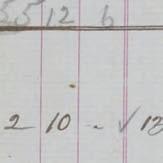 55 12 6
2 10 - ✓ 13